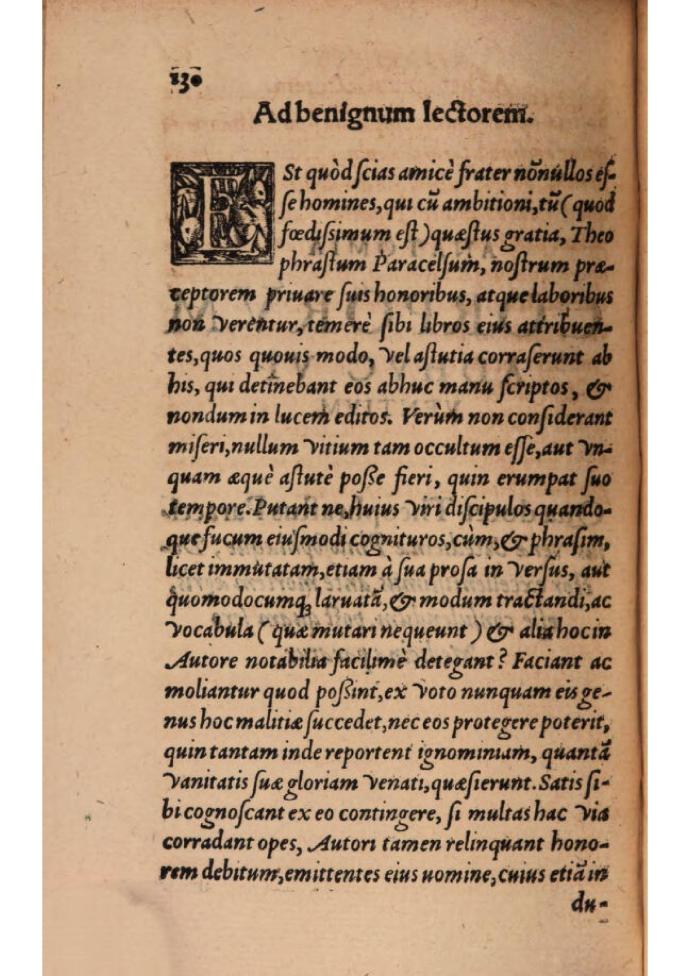 130
Ad benignum lectorem.
ESt quòd scias amicè frater nõnullos es-
se homines, qui cũ ambitioni, tũ (quod
fœdissimum est) quæstus gratia, Theo
phrastum Paracelsum, nostrum præ-
ceptorem priuare suis honoribus, atque laboribus
non verentur, temerè sibi libros eius attribuen-
tes, quos quouis modo, vel astutia corraserunt ab
his, qui detinebant eos abhuc manu scriptos, &
nondum in lucem editos. Verùm non considerant
miseri, nullum vitium tam occultum esse, aut vn-
quam æquè astutè posse fieri, quin erumpat suo
tempore. Putant ne, huius viri discipulos quando-
que fucum eiusmodi cognituros, cùm, & phrasim,
licet immutatam, etiam à sua prosa in versus, aut
quomodocumq; laruatã, & modum tractandi, ac
vocabula (quæ mutari nequeunt) & alia hoc in
Autore notabilia facilimè detegant? Faciant ac
moliantur quod possint, ex voto nunquam eis ge-
nus hoc malitiæ succedet, nec eos protegere poterit,
quin tantam inde reportent ignominiam, quantã
vanitatis suæ gloriam venati, quæsierunt. Satis si-
bi cognoscant ex eo contingere, si multas hac via
corradant opes, Autori tamen relinquant hono-
rem debitum, emittentes eius nomine, cuius etiã in
du-